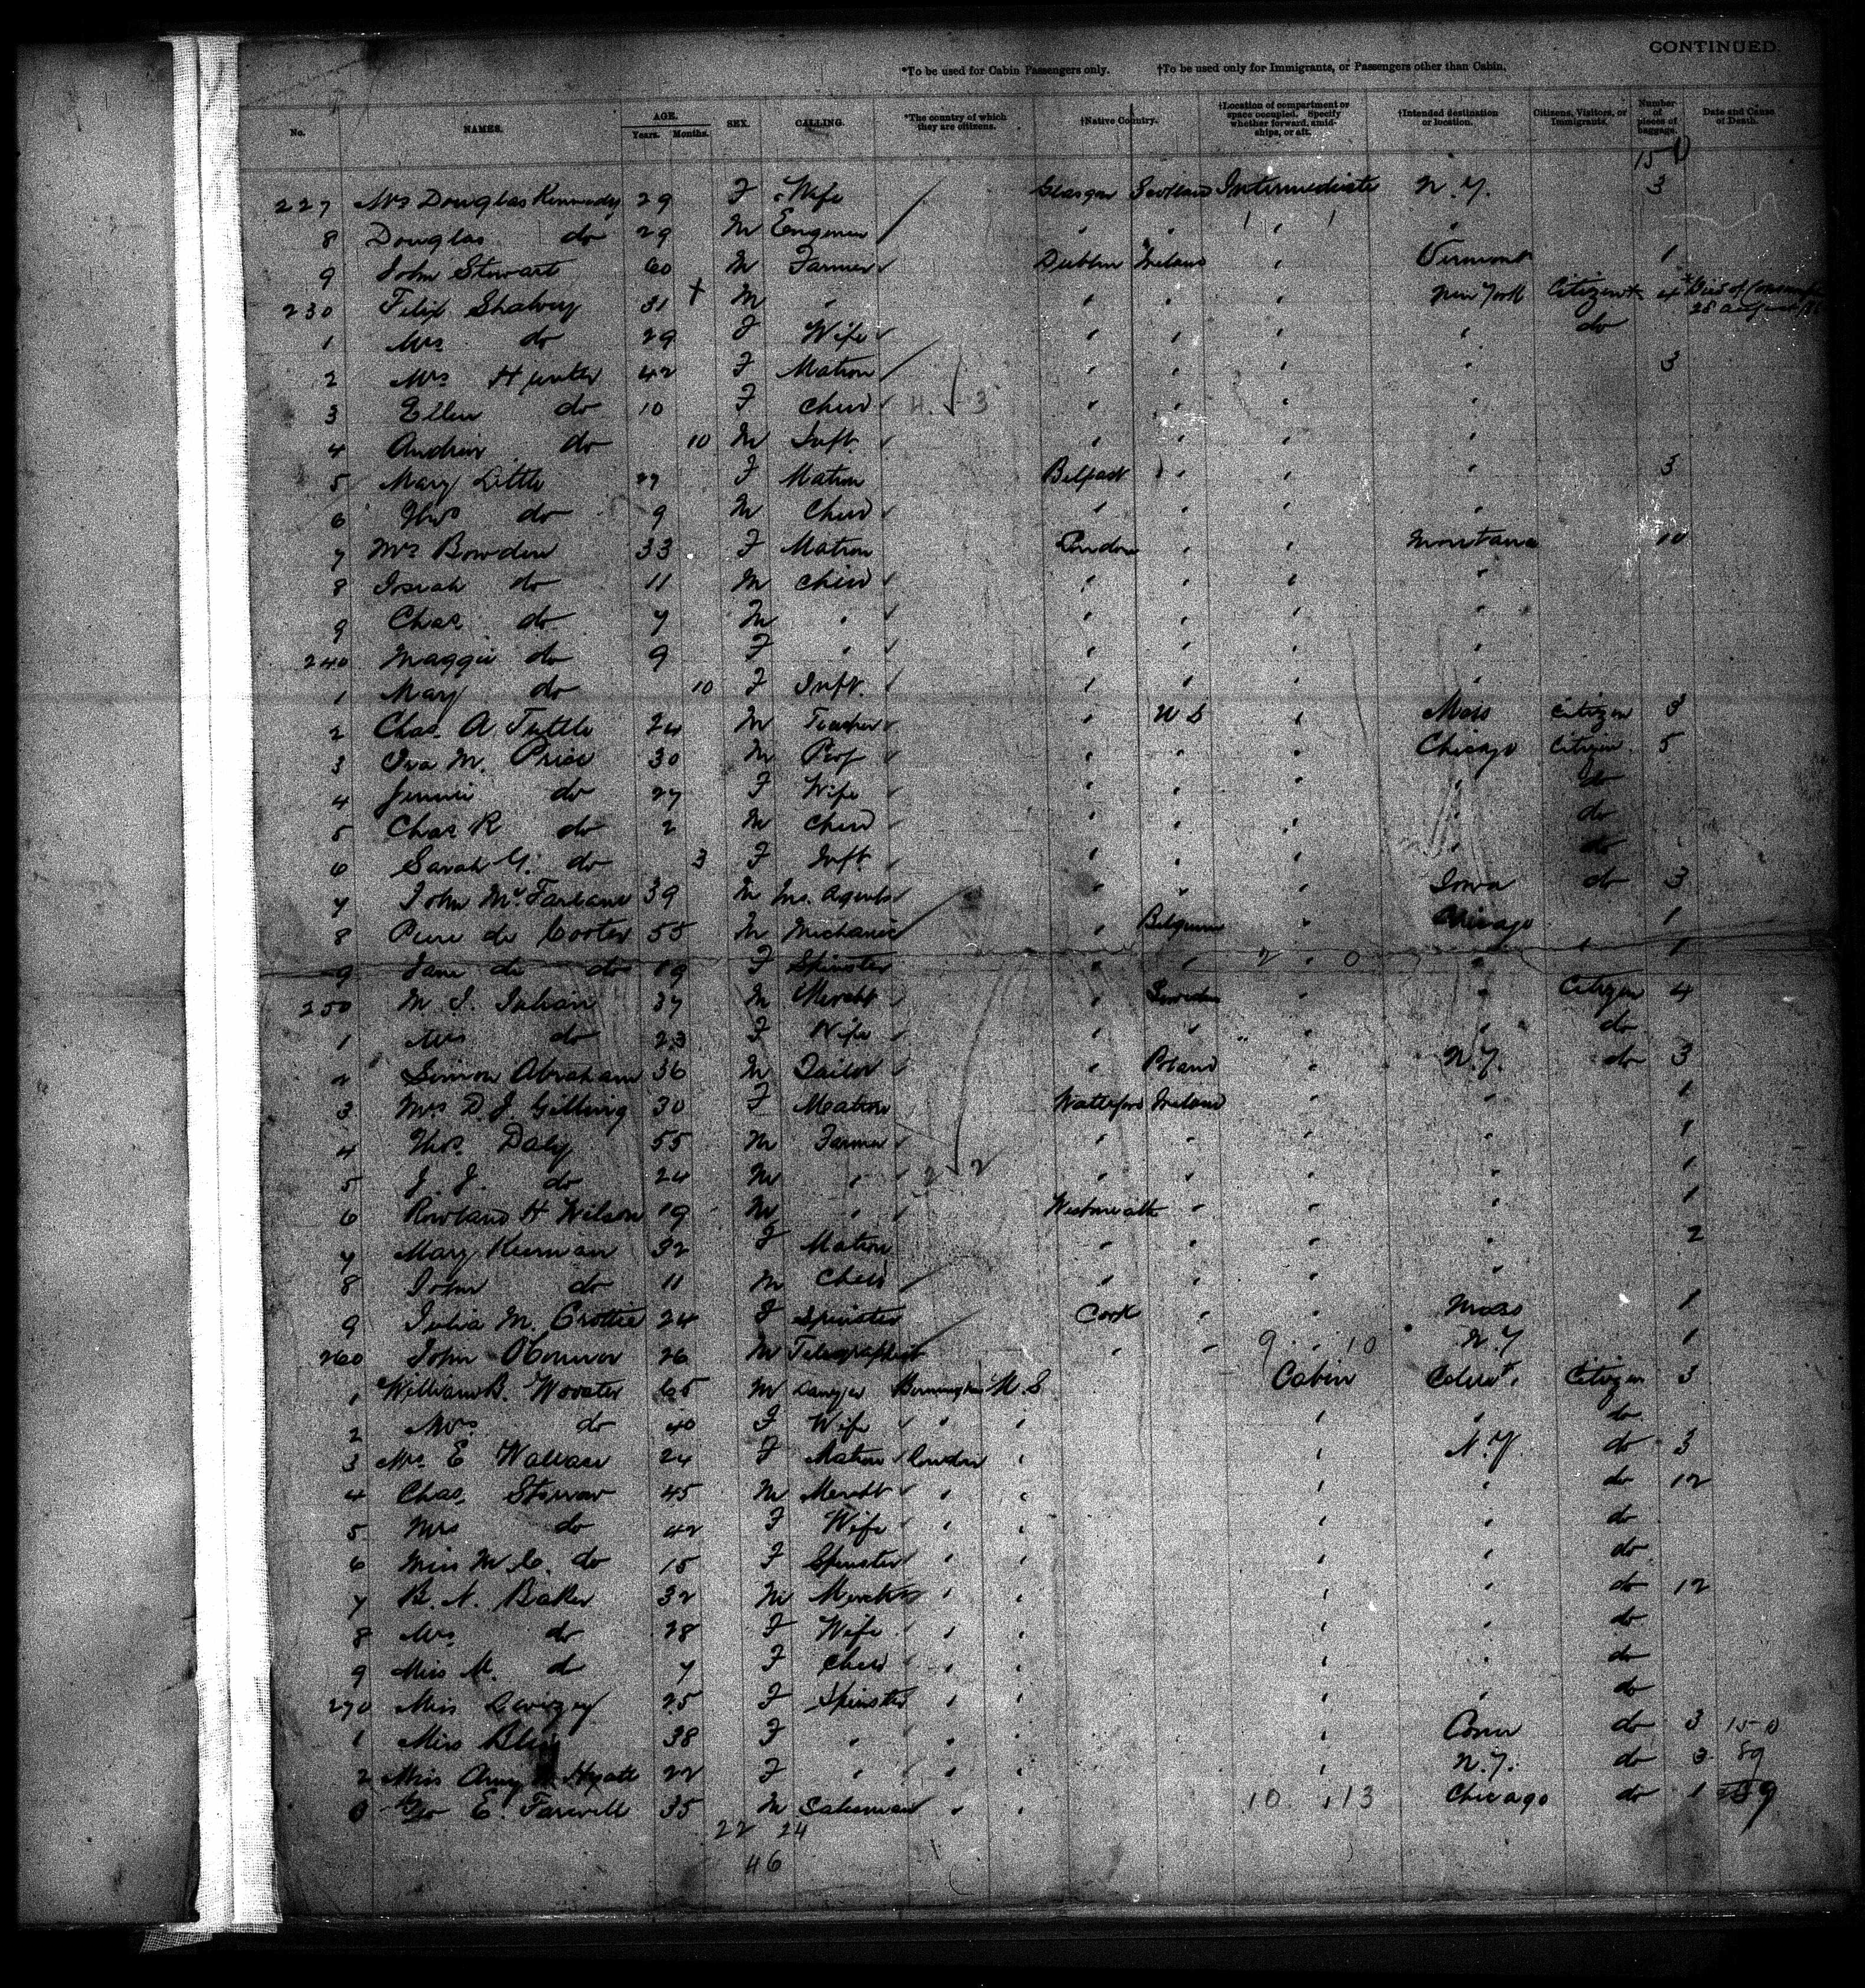 CONTINUED.
*To be used for Cabin Passengers only. †To be used only for Immigrants, or Passengers other than Cabin.
No. NAMES. AGE. Years. Months. SEX. CALLING. *The country of which they are citizens. †Native Country. †Location of compartment or space occupied. Specify whether forward, amidships, or aft. †Intended destination or location. Citizens, Visitors, or Immigrants. Number of pieces of baggage. Date and Cause of Death.
150
227 Mrs Douglas Kennedy 29 F Wife Glasgow Scotland Intermediate N.Y. 3
8 Douglas do 29 M " " " "
9 John Stewart 60 M Farmer Dublin Ireland " Vermont 1
230 Felix 31 + M " " " " New York Citizen + 4 * Died of
1 Mrs do 29 F Wife " " " " do
2 Mrs Hunter 42 F Matron " " " " 3
3 Ellen do 10 F Child 4 3 " " " "
4 Andrew do 10 M Inft. " " " "
5 Mary Little 27 F Matron Belfast " " " 3
6 Thos do 9 M Child " " " "
7 Mrs Bowden 33 F Matron London " " Montana 10
8 Josiah do 11 M Child " " " "
9 Chas do 7 M " " " " "
240 Maggie do 9 F " " " " "
1 Mary do 10 F Inft. " " " "
2 Chas. A Tuttle 24 M Teacher " U S " Mass Citizen 3
3 Ira M. Price 30 M Prof " " " Chicago Citizen 5
4 Jennie do 27 F Wife " " " " do
5 Chas R do 2 M Child " " " " do
6 Sarah G. do 3 F Inft. " " " " do
7 John McFarlane 39 M Ins. Agent " " " Iowa do 3
8 de Coster 55 M Mechanic " Belgium " Chicago 1
9 Jane de do 19 F Spinster " " 2 " 0 " 1
250 M. J. Julian 37 M Mercht " Sweden " " Citizen 4
1 Mrs do 23 F Wife " " " " do
2 Simon Abraham 36 M Tailor " Poland " N.Y. do 3
3 Mrs D. J. 30 F Matron Waterford Ireland " " 1
4 Thos. Daly 55 M Farmer " " " " 1
5 J. J. do 24 M " 2 2 " " " " 1
6 Rowland H Wilson 19 M " Westmeath " " " 1
7 Mary Kiernan 32 F Matron " " " " 2
8 John do 11 M Child " " " "
9 Julia M. Crottie 24 F Spinster Cork " " Mass 1
260 John O'Connor 26 M Telegraphist " " 9 " 10 N.Y 1
1 William B. 65 M Lawyer Birmingham U.S Cabin Citizen 3
2 Mrs do 40 F Wife " " " " do
3 Mrs. E Wallace 24 F Matron London " " N.Y do 3
4 Chas. 45 M Mercht " " " " do 12
5 Mrs do 42 F Wife " " " " do
6 Miss M. C. do 15 F Spinster " " " " do
7 B. N. Baker 32 M Mercht " " " " do 12
8 Mrs do 28 F Wife " " " " do
9 Miss M. do 7 F Child " " " " do
270 Miss 25 F Spinster " " " " do
1 Miss 38 F " " " " Conn do 3 150
2 Miss Amy Hyatt 22 F " " " " N.Y. do 3 89
3 Geo E. Farwell 35 M Salesman " " 10 " 13 Chicago do 1
22 24
46